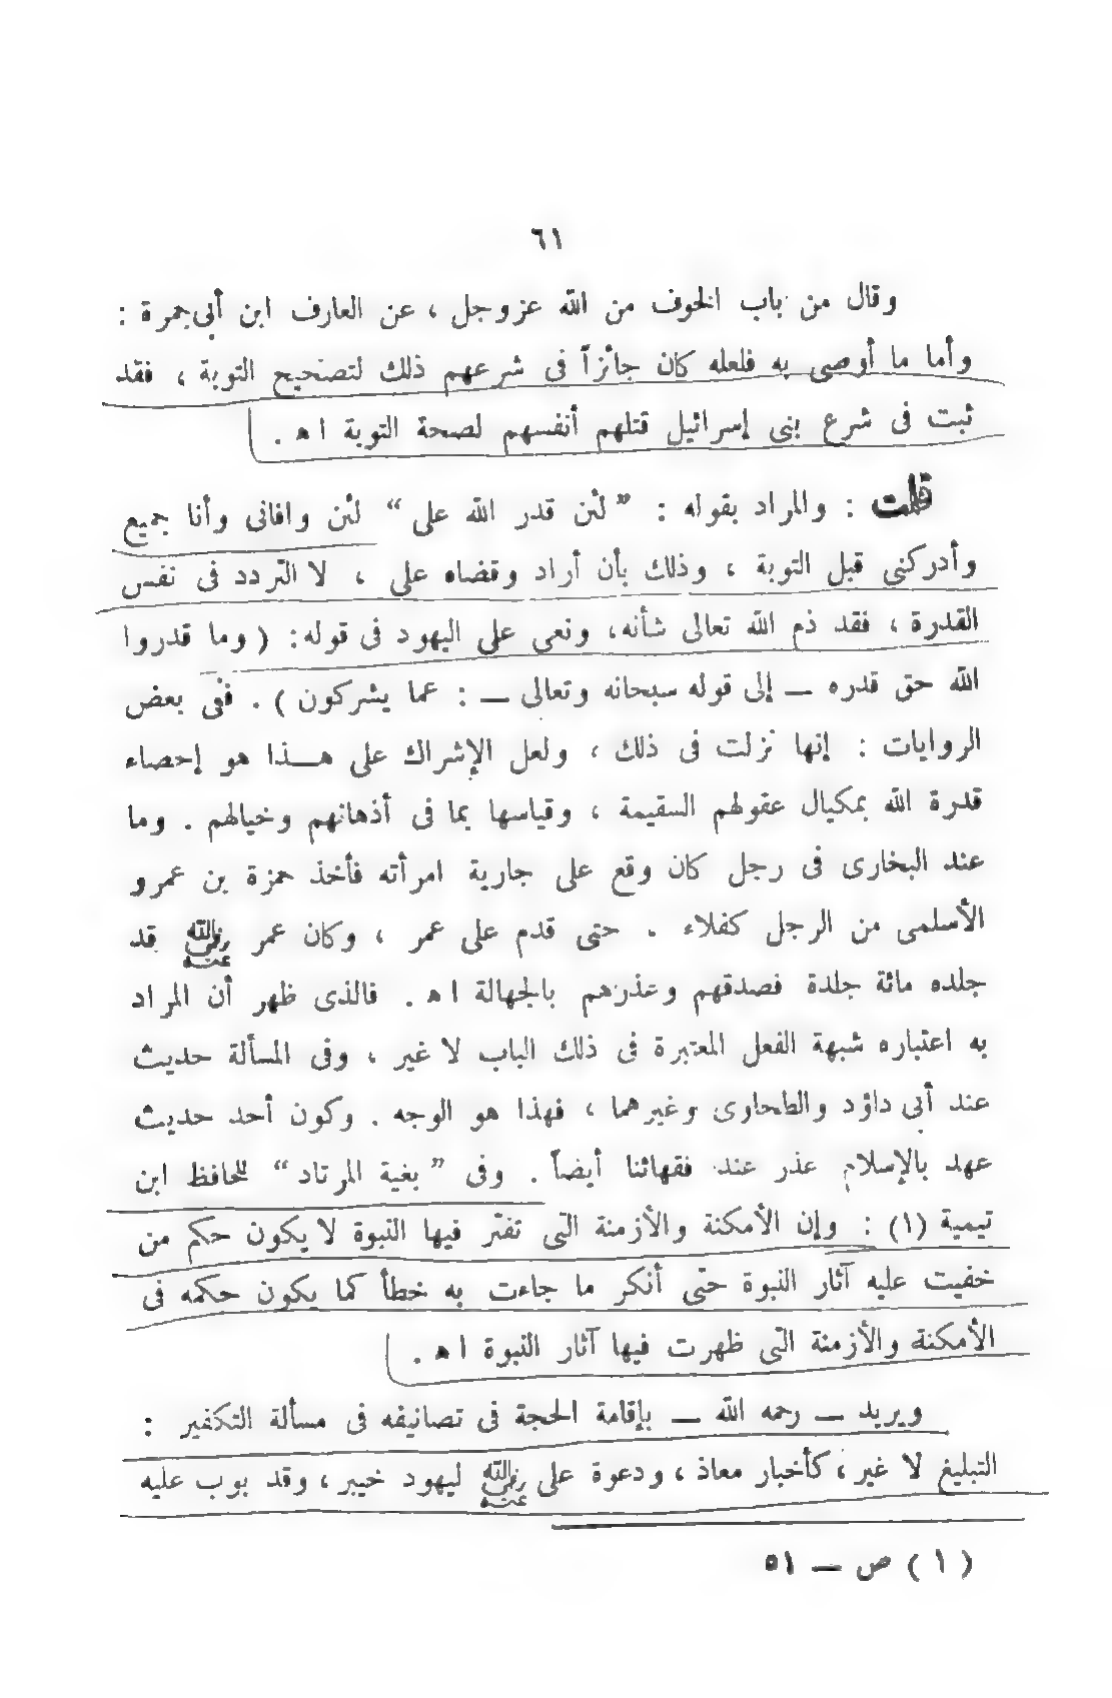 ٦١
وقال من باب الخوف من الله عزوجل ، عن العارف ابن أبى جمرة :
وأما ما أوصى به فلعله كان جائزاً فى شرعهم ذلك لتصحيح التوبة ، فقد
ثبت فى شرع بنى إسرائيل قتلهم أنفسهم لصحة التوبة اه .
قلت : والمراد بقوله : ” لئن قدر الله على “ لئن وافانى وأنا جميع
وأدركنى قبل التوبة ، وذلك بأن أراد وقضاه على ، لا التردد فى نفس
القدرة ، فقد ذم الله تعالى شأنه، ونعى على اليهود فى قوله: ( وما قدروا
الله حق قدره — إلى قوله سبحانه وتعالى — : عما يشركون ) . ففى بعض
الروايات : إنها نزلت فى ذلك ، ولعل الإشراك على هـذا هو إحصاء
قدرة الله بمكيال عقولهم السقيمة ، وقياسها بما فى أذهانهم وخيالهم . وما
عند البخارى فى رجل كان وقع على جارية امرأته فأخذ حمزة بن عمرو
الأسلمى من الرجل كفلاء . حتى قدم على عمر ، وكان عمر رضي الله عنه قد
جلده مائة جلدة فصدقهم وعذرهم بالجهالة اه . فالذى ظهر أن المراد
به اعتباره شبهة الفعل المعتبرة فى ذلك الباب لا غير ، وفى المسألة حديث
عند أبى داؤد والطحاوى وغيرهما ، فهذا هو الوجه . وكون أحد حديث
عهد بالإسلام عذر عند فقهائنا أيضاً . وفى ” بغية المرتاد “ للحافظ ابن
تيمية (١) : وإن الأمكنة والأزمنة التى تفتر فيها النبوة لا يكون حكم من
خفيت عليه آثار النبوة حتى أنكر ما جاءت به خطأ كما يكون حكمه فى
الأمكنة والأزمنة التى ظهرت فيها آثار النبوة اه .
ويريد — رحمه الله — بإقامة الحجة فى تصانيفه فى مسألة التكفير :
التبليغ لا غير ، كأخبار معاذ ، ودعوة على رضي الله عنه ليهود خيبر ، وقد بوب عليه
( ١ ) ص — ٥١